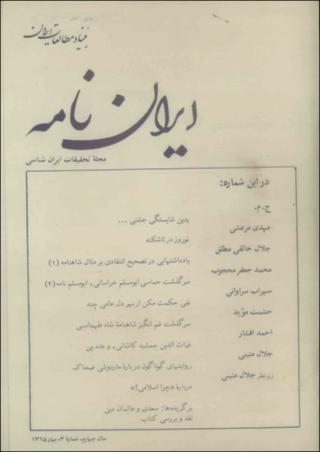 بنیاد مطالعات ایران
ایران نامه
مجلهٔ تحقیقات ایران شناسی
در این شماره:
ج.م. بدین شایستگی جشنی ...
مهدی مرعشی نوروز در تاشکند
جلال خالقی مطلق یادداشتهایی در تصحیح انتقادی بر مثال شاهنامه (۱)
محمد جعفر محجوب سرگذشت حماسی ابومسلم خراسانی، ابومسلم نامه (۲)
سهراب سراوانی نفی حکمت مکن از بهر دل عامی چند
حشمت مؤید سرگذشت غم انگیز شاهنامهٔ شاه طهماسبی
احمد افشار غیاث الدین جمشید کاشانی، و عدد پی
جلال متینی روایتهای گوناگون دربارهٔ ماردوشی ضحاک
زیرنظر جلال متینی دربارهٔ «چرا اسلامی!»
برگزیده‌ها: سعدی و عالمان دین
نقد و بررسی کتاب
سال چهارم، شمارهٔ ۳، بهار ۱۳۶۵